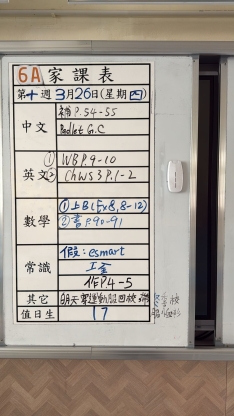 6A 家課表
第十週3月26日(星期四)
中文
補P.54-55
Padlet G.C
英文
① WB P.9-10
② Ch WS 3 P.1-2
數學
①上B(5x8,8-12)
②書P.90-91
常識
假:esmart
工金
作P.4-5
其它
明天穿運動服回校
值日生
17